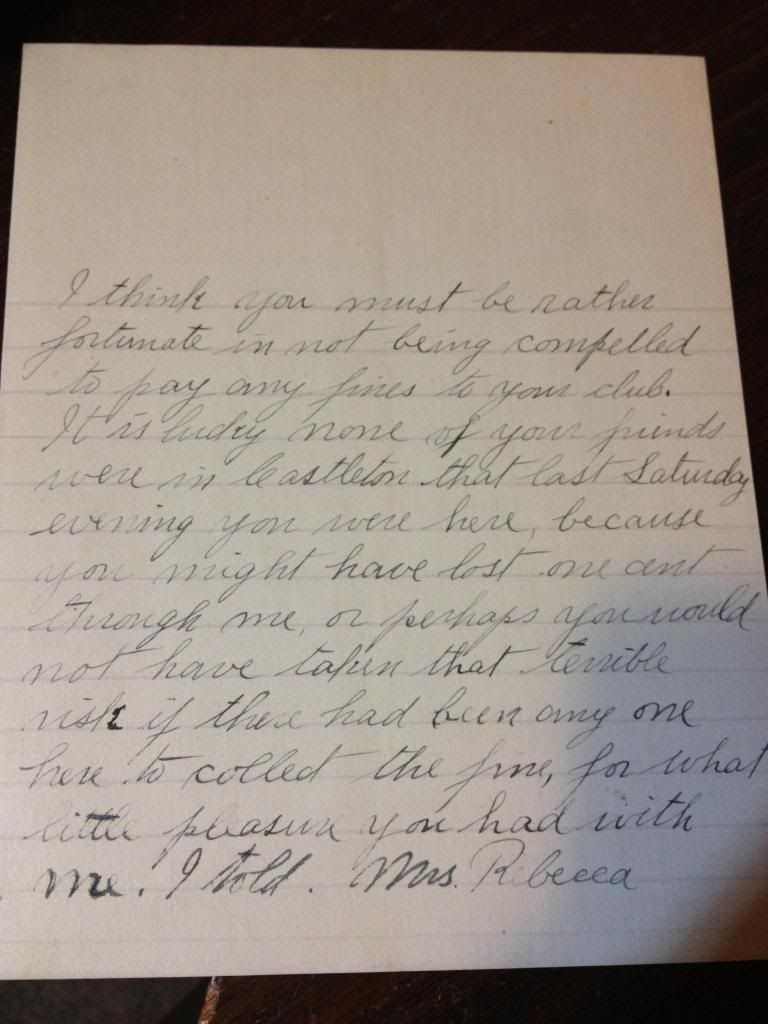 I think you must be rather
fortunate in not being compelled
to pay any fines to your club.
It is lucky none of your friends
were in Castleton that last Saturday
evening you were here, because
you might have lost one cent
through me, or perhaps you would
not have taken that terrible
risk if there had been any one
here to collect the fine, for what
little pleasure you had with
me. I told. Mrs. Rebecca